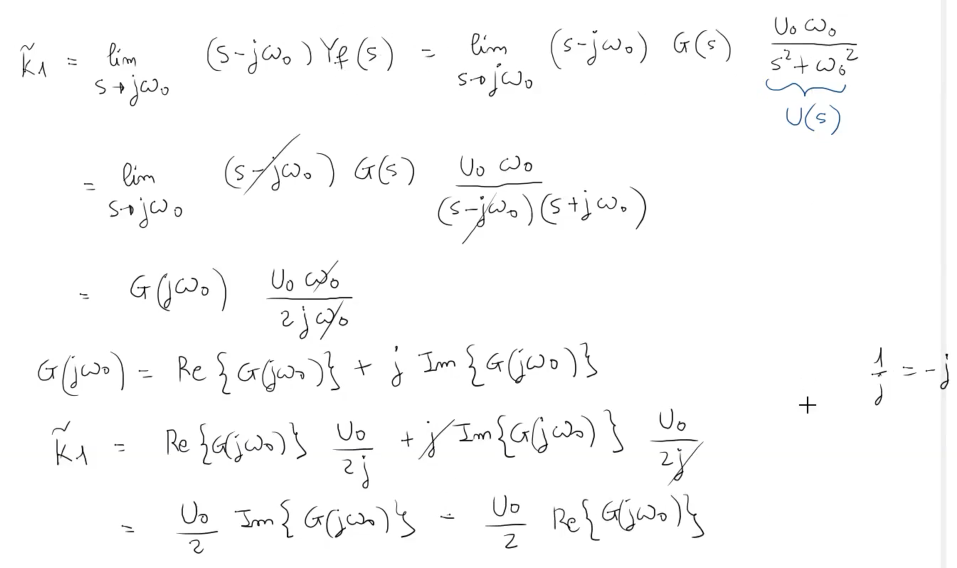 K̃1 = lim s→jω₀ (s-jω₀) Yf(s) = lim s→jω₀ (s-jω₀) G(s) U₀ω₀ / (s²+ω₀²)
U(s)
= lim s→jω₀ (s-jω₀) G(s) U₀ω₀ / ((s-jω₀)(s+jω₀))
= G(jω₀) U₀ω₀ / (2jω₀)
G(jω₀) = Re{G(jω₀)} + j Im{G(jω₀)}
1/j = -j
+
K̃1 = Re{G(jω₀)} U₀/(2j) + j Im{G(jω₀)} U₀/(2j)
= U₀/2 Im{G(jω₀)} - U₀/2 Re{G(jω₀)}